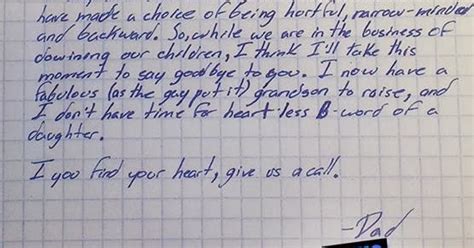 have made a choice of being hortful, narrow-minded
and backward. So, while we are in the business of
dowining our children, I think I'll take this
moment to say goodbye to you. I now have a
fabulous (as the gay put it) grandson to raise, and
I don't have time for heart-less B-word of a
daughter.
I you find your heart, give us a call.
-Dad